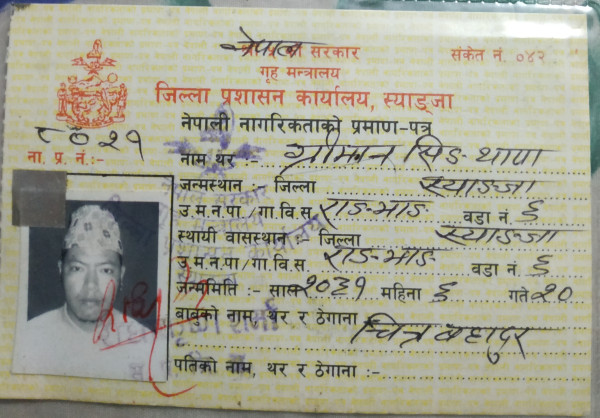 नेपाल सरकार
संकेत नं. ०४२
गृह मन्त्रालय
जिल्ला प्रशासन कार्यालय, स्याङ्जा
नेपाली नागरिकताको प्रमाण-पत्र
ना. प्र. नं.:-
नाम थर :- श्रीमान सिङ थापा
जन्मस्थान :- जिल्ला स्याङजा
उ.म.न.पा./गा.वि.स. राङभाङ वडा नं. ६
स्थायी वासस्थान :- जिल्ला स्याङजा
उ.म.न.पा./गा.वि.स. राङभाङ वडा नं. ६
जन्ममिति :- साल २०३१ महिना ६ गते २०
बाबुको नाम, थर र ठेगाना : चित्र बहादुर
पतिको नाम, थर र ठेगाना :-